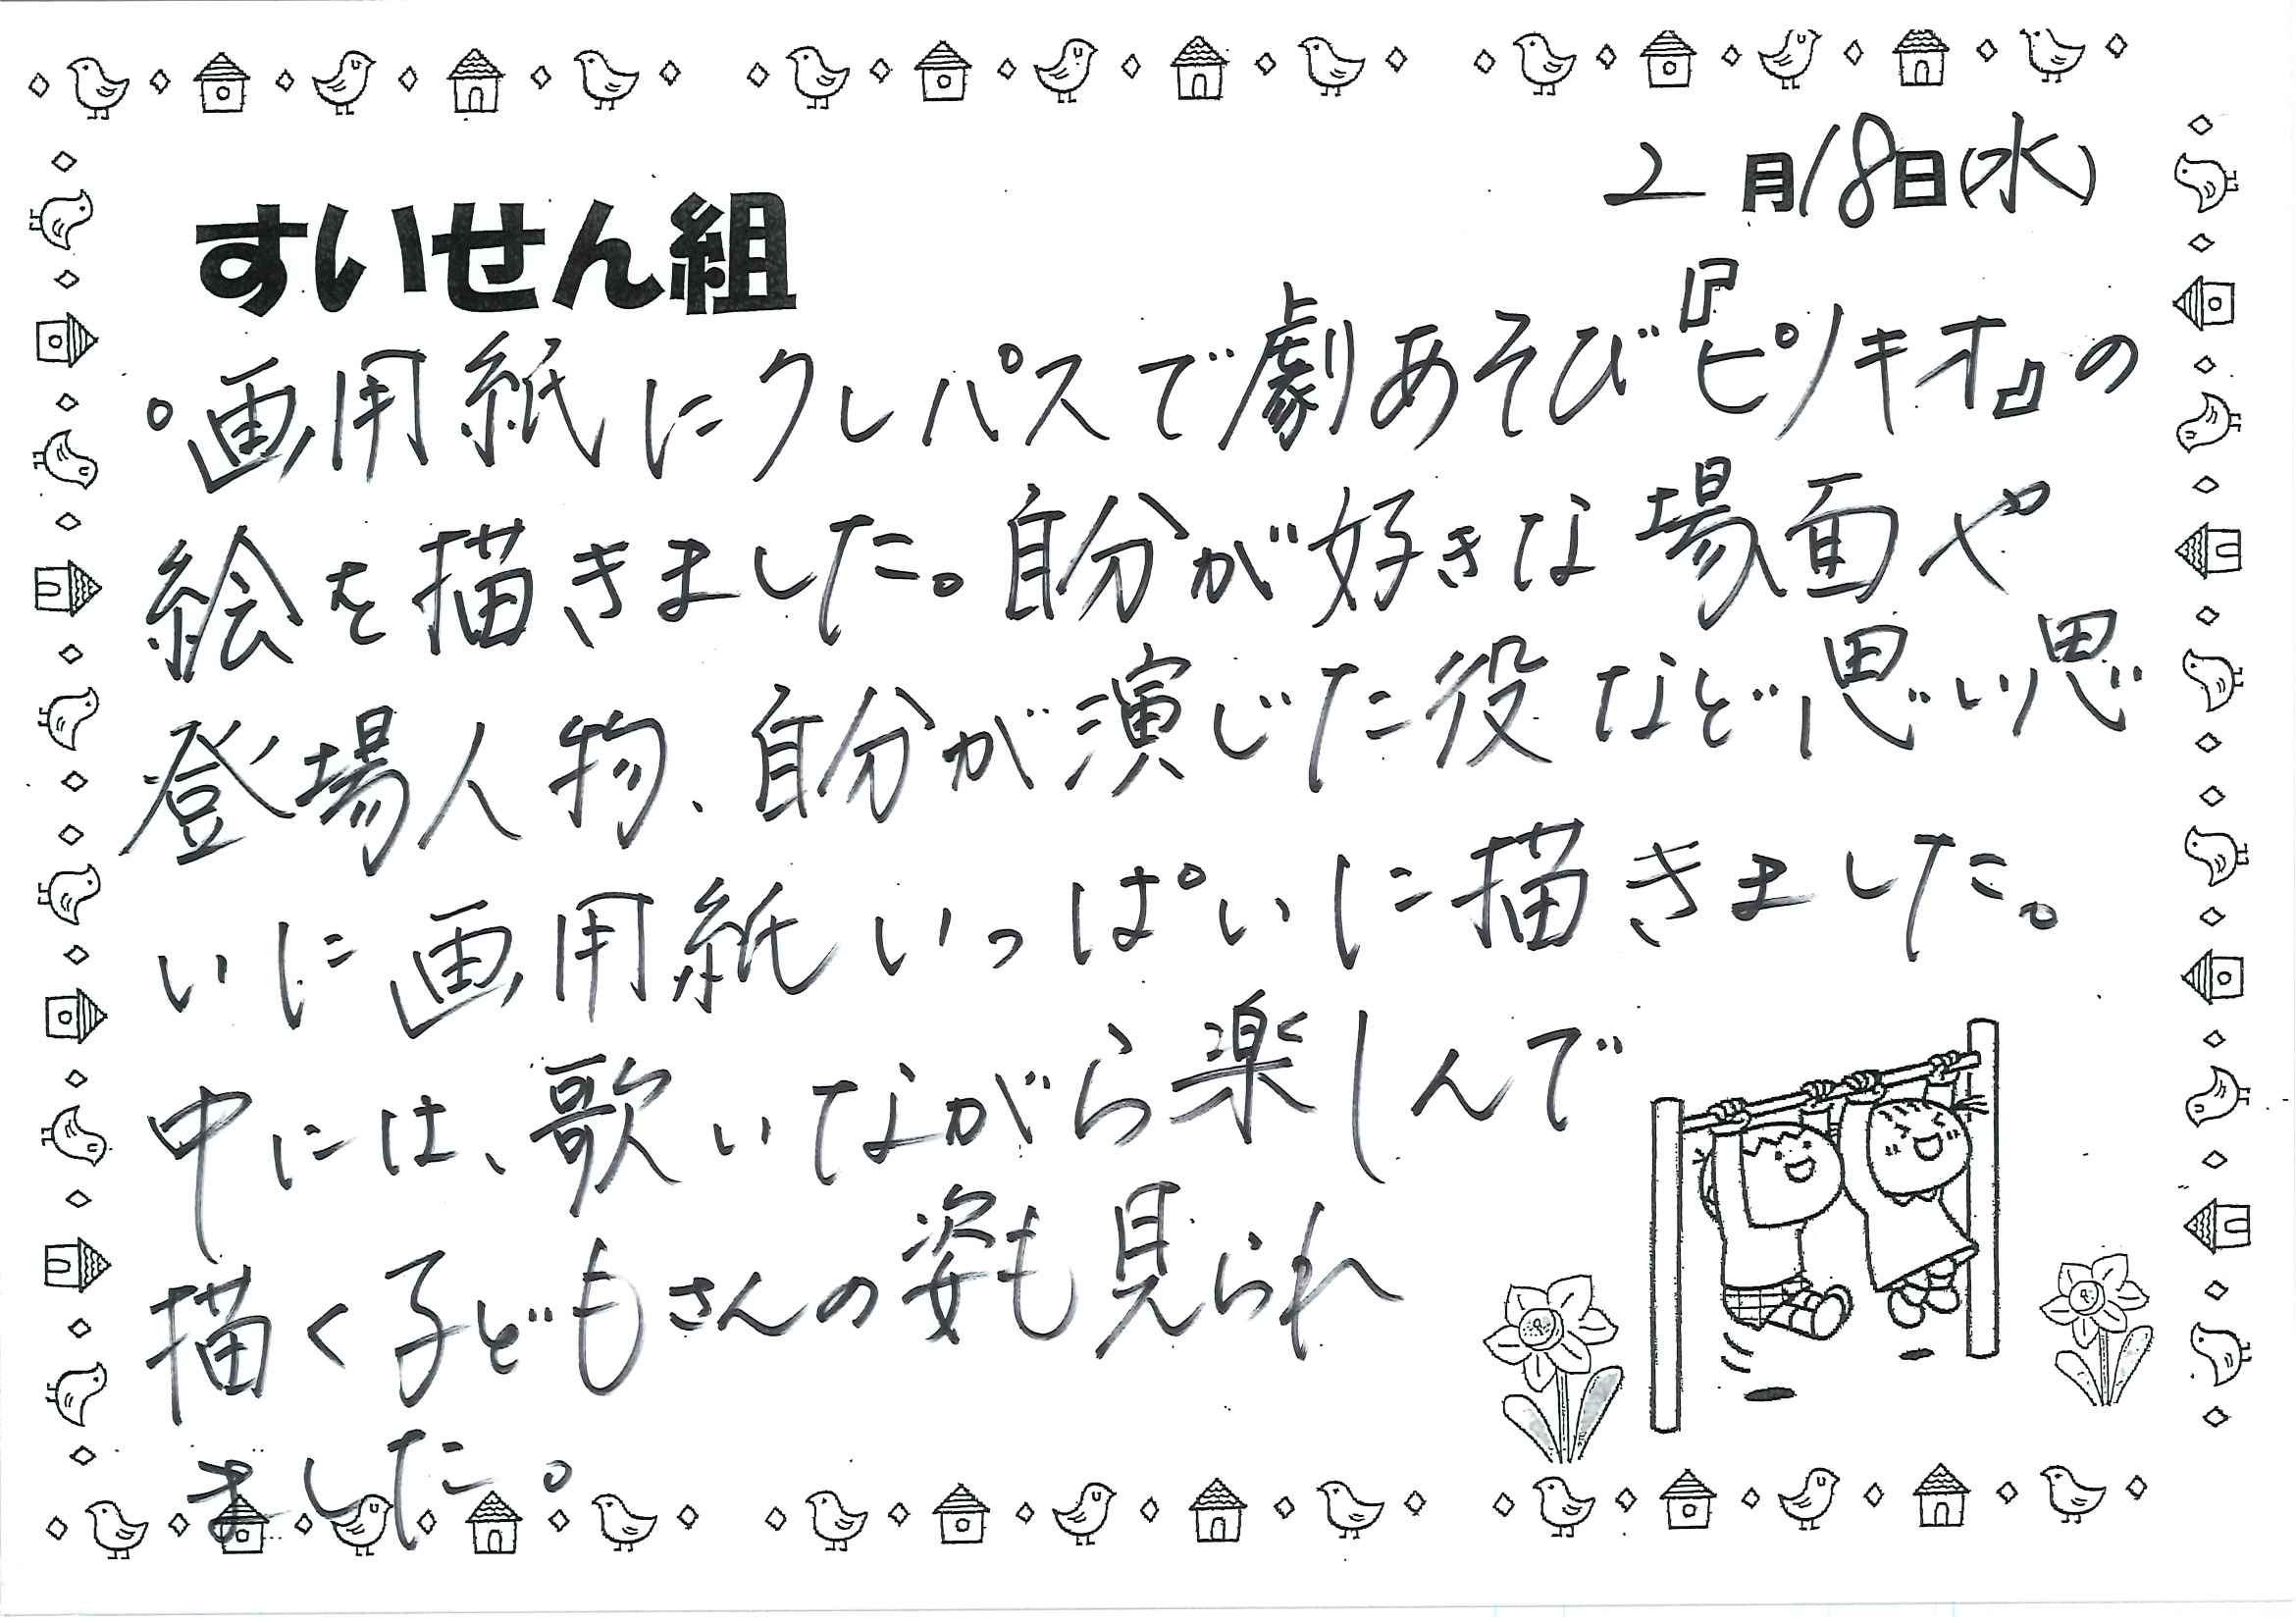 2月18日(水)
すいせん組
○画用紙にクレパスで劇あそび『ピノキオ』の
絵を描きました。自分が好きな場面や
登場人物、自分が演じた役など思い思
いに画用紙いっぱいに描きました。
中には、歌いながら楽しんで
描く子どもさんの姿も見られ
ました。